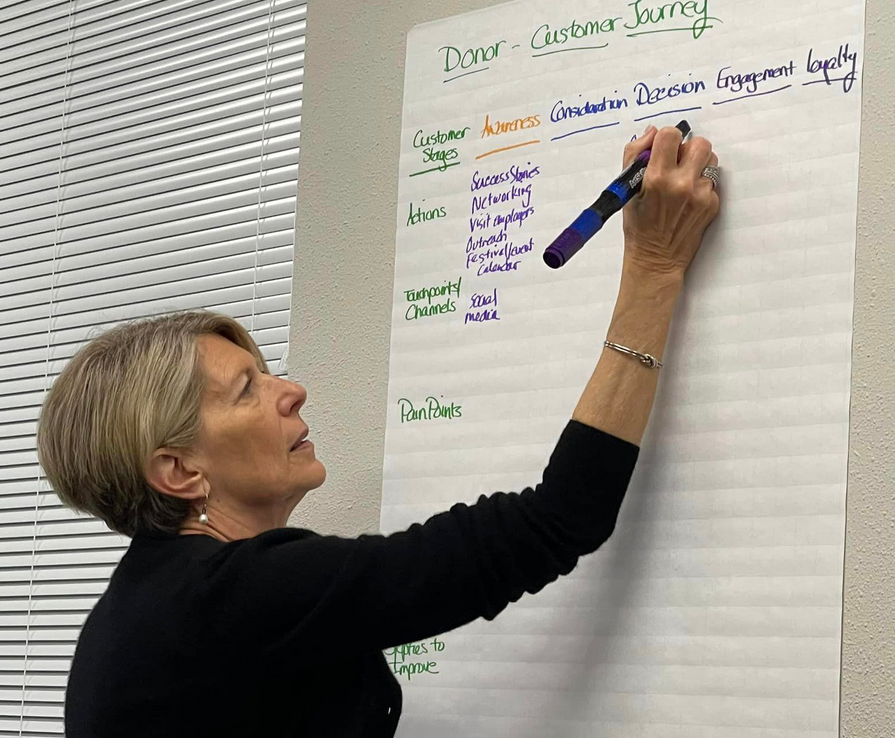 Donor - Customer Journey
Customer Stages
Awareness
Consideration
Decision
Engagement
Loyalty
Actions
Success Stories
Networking
Visit employers
Outreach
Festival/event
Calendar
Touchpoints/
Channels
Social
media
Pain Points
to
Improve